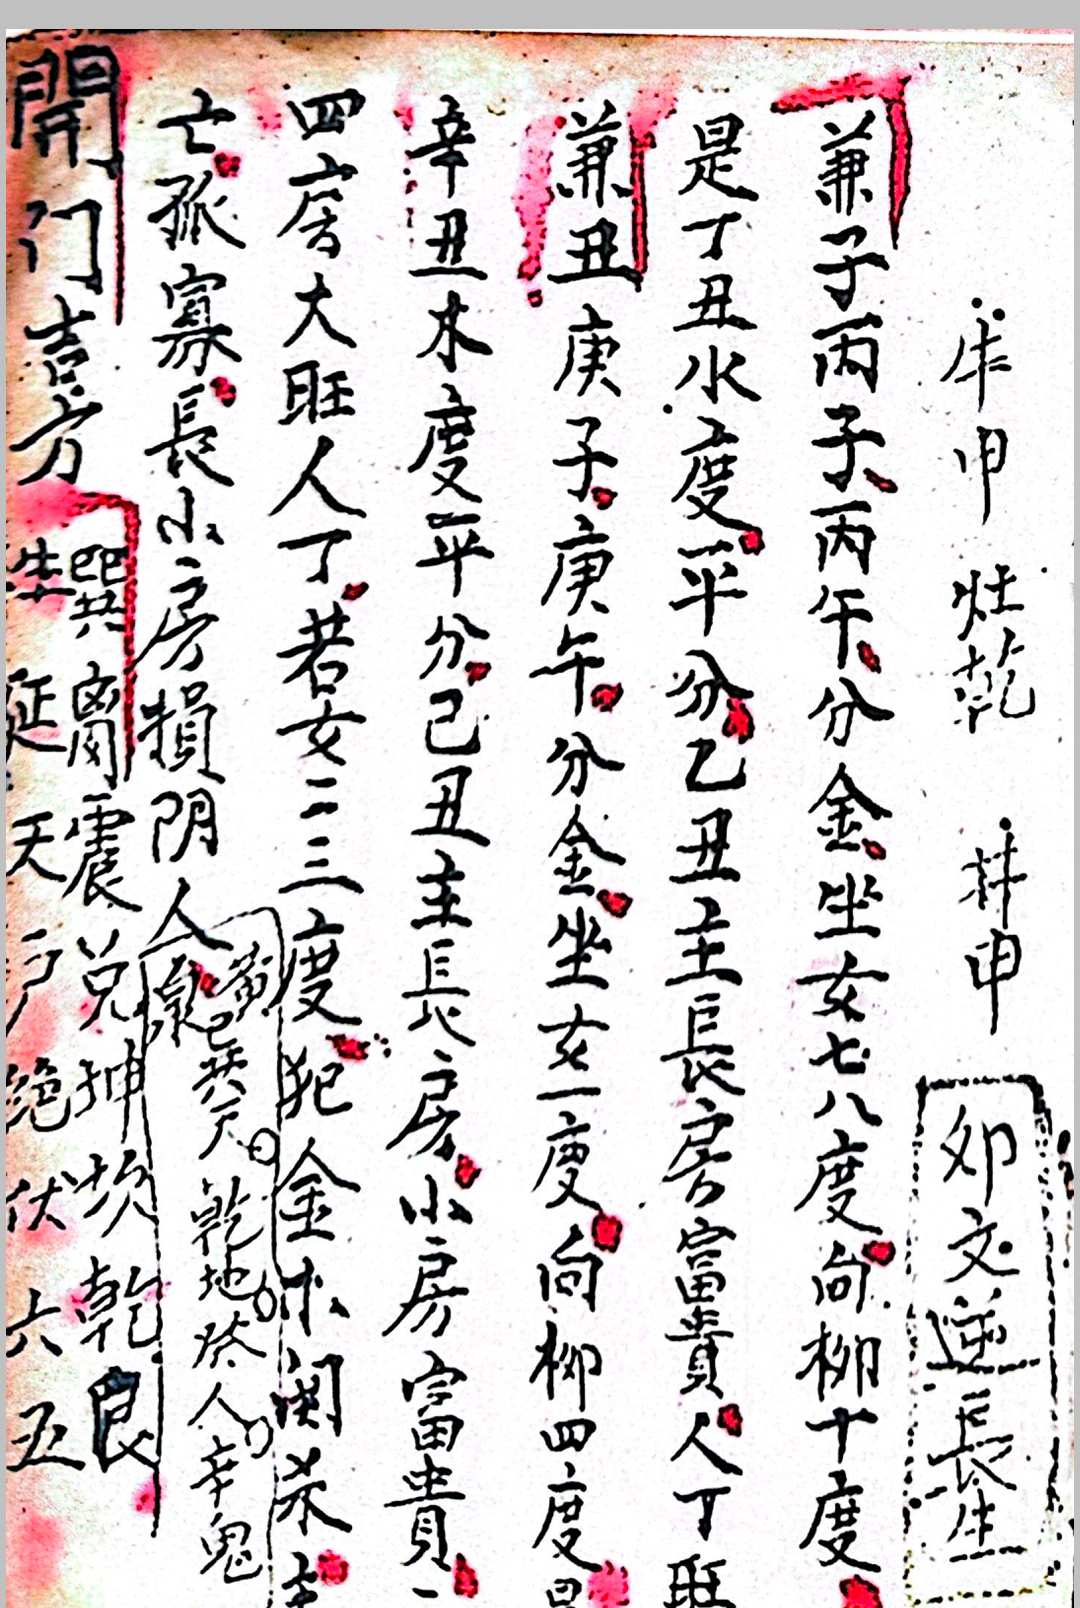 庫申 灶乾 井申
卯文逆長生
兼子丙子丙午分金坐女七八度向柳十度
是丁丑水度平分乙丑主長房富貴人丁旺
兼丑庚子庚午分金坐女一度向柳四度是
辛丑木度平分己丑主長房小房富貴
四房大旺人丁若女二三度犯金木関杀主
亡孤寡長小房損阴人
黃泉
巳巽天 乾地癸人辛鬼
開门吉方
巽离震兑坤坎乾艮
生延天 绝伏六五